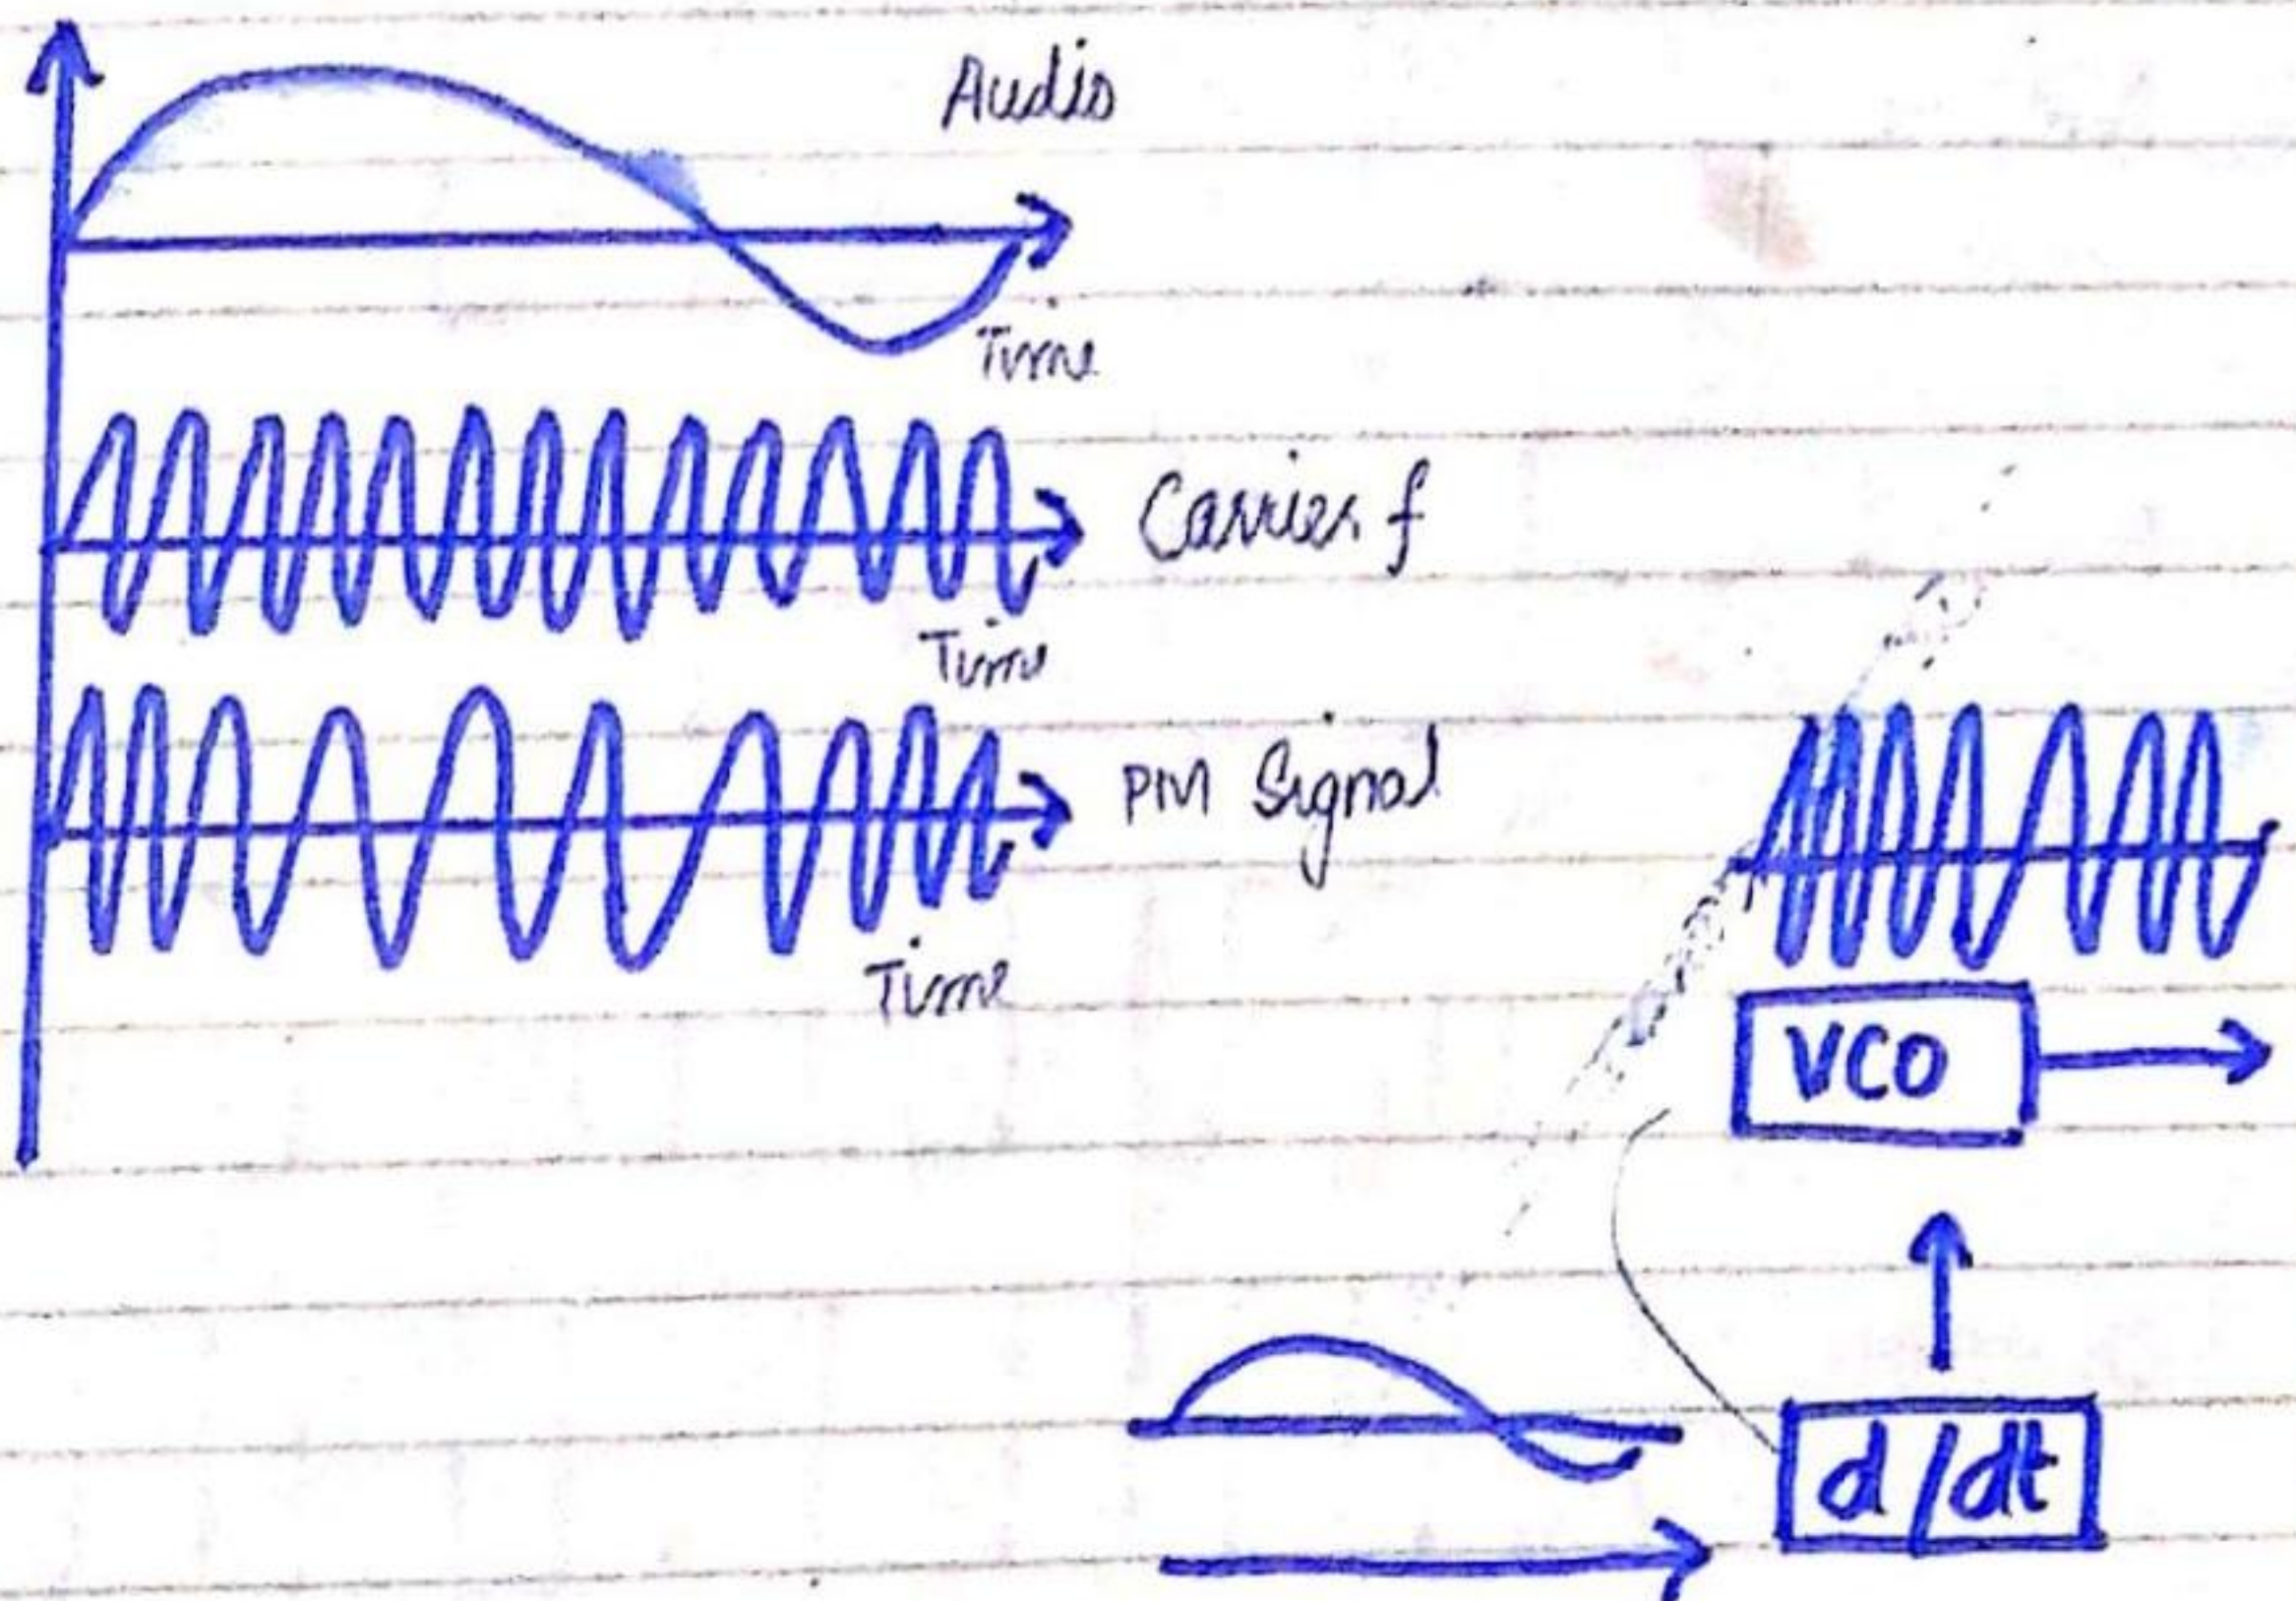 Audio
Time
Carrier f
Time
PM Signal
Time
VCO
d/dt